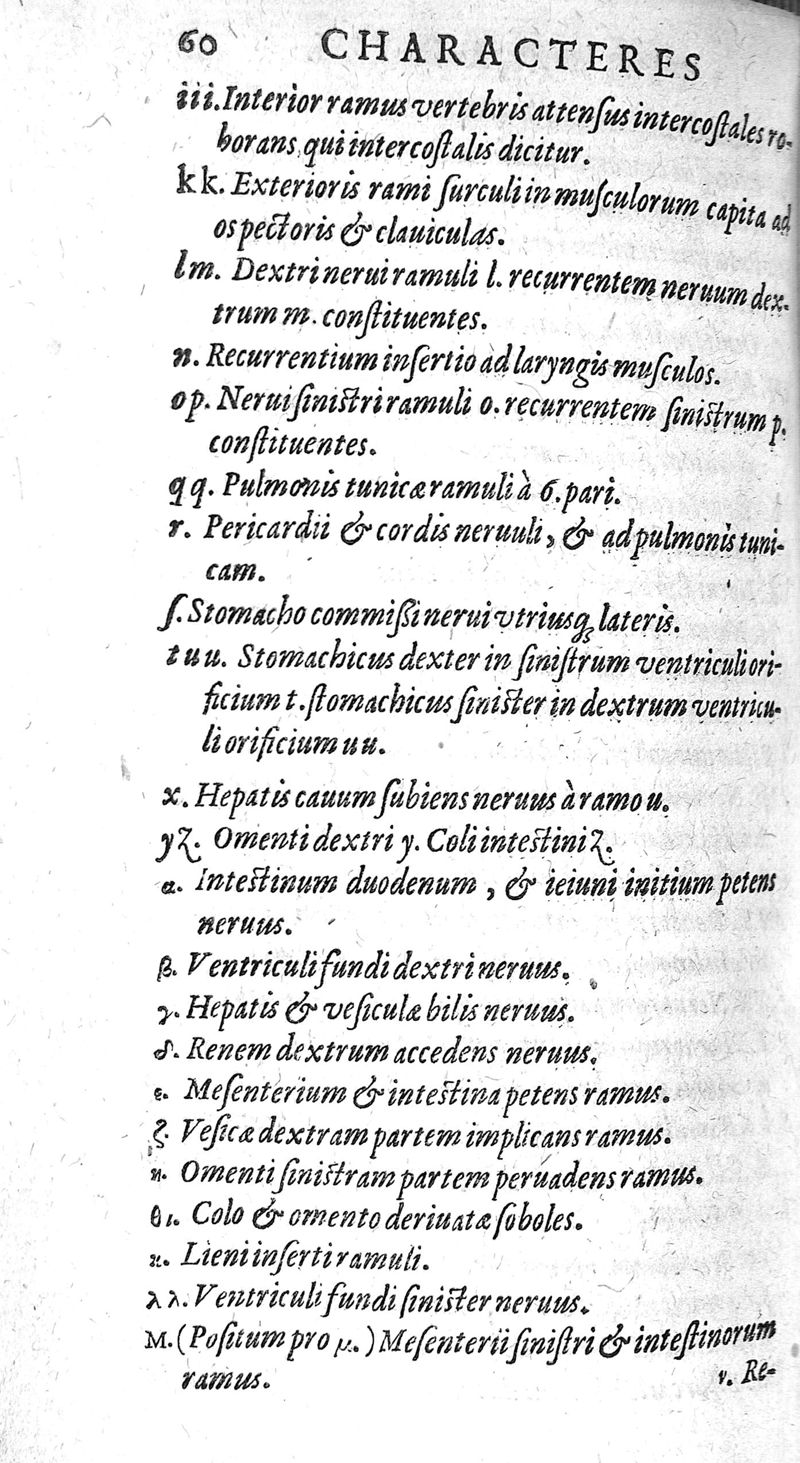 60 CHARACTERES
iii. Interior ramus vertebris attenſus intercoſtales ro-
borans, qui intercoſtalis dicitur.
kk. Exterioris rami ſurculi in muſculorum capita ad
os pectoris & clauiculas.
lm. Dextri nerui ramuli l. recurrentem neruum dex-
trum m. conſtituentes.
n. Recurrentium inſertio ad laryngis muſculos.
op. Nerui ſiniſtri ramuli o. recurrentem ſiniſtrum p.
conſtituentes.
qq. Pulmonis tunicæ ramuli à 6. pari.
r. Pericardii & cordis neruuli, & ad pulmonis tuni-
cam.
ſ. Stomacho commiſſi nerui vtriusq; lateris.
tuu. Stomachicus dexter in ſiniſtrum ventriculi ori-
ficium t. ſtomachicus ſiniſter in dextrum ventricu-
li orificium uu.
x. Hepatis cauum ſubiens neruus à ramo u.
yz. Omenti dextri y. Coli inteſtini z.
α. Inteſtinum duodenum, & ieiuni initium petens
neruus.
β. Ventriculi fundi dextri neruus.
γ. Hepatis & veſiculæ bilis neruus.
δ. Renem dextrum accedens neruus.
ε. Meſenterium & inteſtina petens ramus.
ζ. Veſicæ dextram partem implicans ramus.
η. Omenti ſiniſtram partem peruadens ramus.
θι. Colo & omento deriuatæ ſoboles.
κ. Lieni inſerti ramuli.
λλ. Ventriculi fundi ſiniſter neruus.
M. (Poſitum pro μ.) Meſenterii ſiniſtri & inteſtinorum
ramus.
ν. Re-